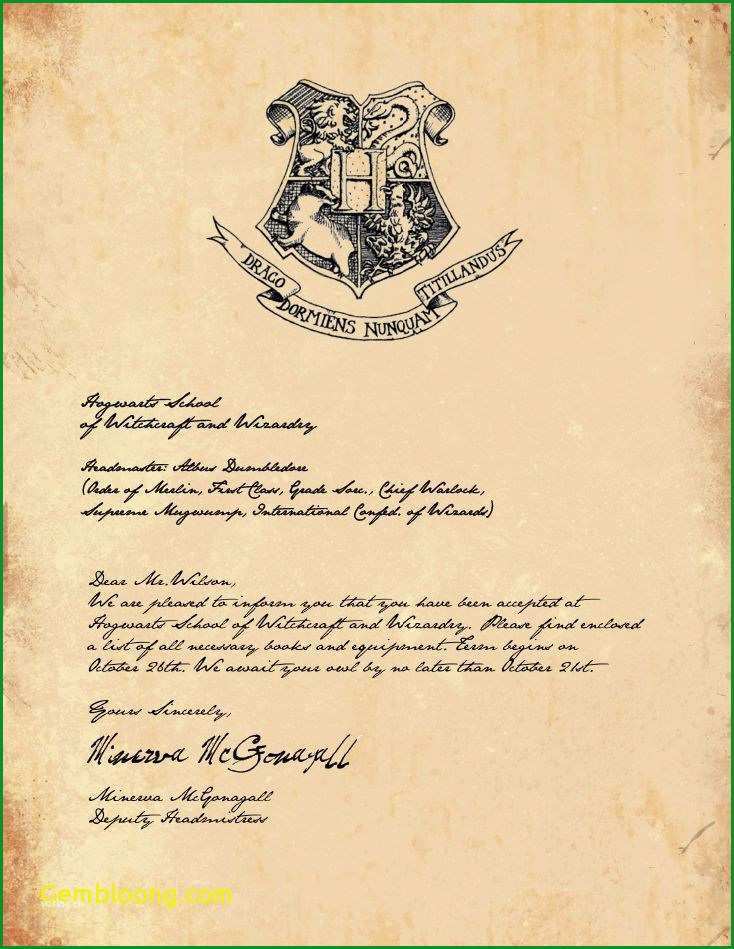 H
DRAGO DORMIENS NUNQUAM TITILLANDUS
Hogwarts School
of Witchcraft and Wizardry
Headmaster: Albus Dumbledore
(Order of Merlin, First Class, Grade Sorc., Chief Warlock,
Supreme Mugwump, International Confed. of Wizards)
Dear Mr. Wilson,
We are pleased to inform you that you have been accepted at
Hogwarts School of Witchcraft and Wizardry. Please find enclosed
a list of all necessary books and equipment. Term begins on
October 26th. We await your owl by no later than October 21st.
Yours Sincerely,
Minerva McGonagall
Minerva McGonagall
Deputy Headmistress
Gembloong.com